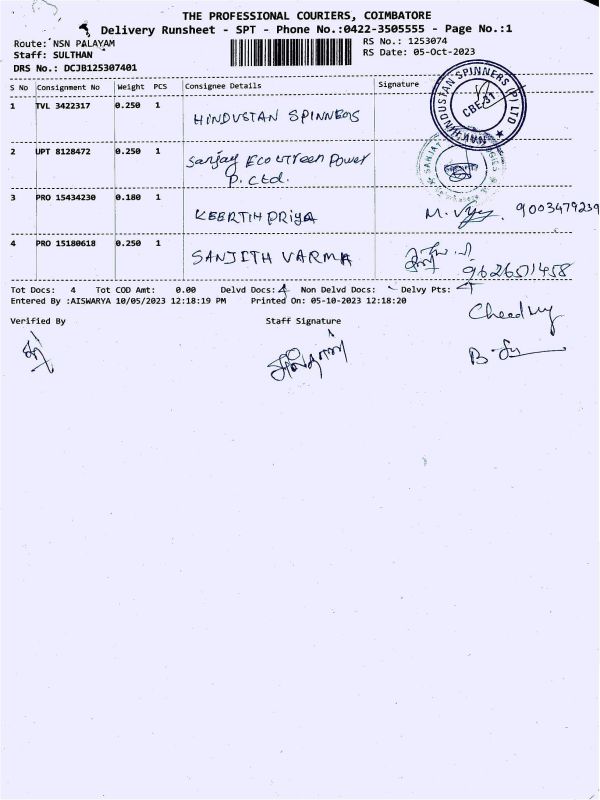 THE PROFESSIONAL COURIERS, COIMBATORE
Delivery Runsheet - SPT - Phone No.:0422-3505555 - Page No.:1
Route: NSN PALAYAM
RS No.: 1253074
Staff: SULTHAN
RS Date: 05-Oct-2023
DRS No.: DCJB125307401
S No Consignment No Weight PCS Consignee Details Signature
1 TVL 3422317 0.250 1 HINDUSTAN SPINNERS
HINDUSTAN SPINNERS (P) LTD
CBE-31
2 UPT 8128472 0.250 1 Sanjay Eco Green Power
P. Ltd.
SANJAY
3 PRO 15434230 0.180 1 KEERTHI PRIYA 9003479239
4 PRO 15180618 0.250 1 SANJITH VARMA
9626571458
Tot Docs: 4 Tot COD Amt: 0.00 Delvd Docs: 4 Non Delvd Docs: - Delvy Pts: 4
Entered By :AISWARYA 10/05/2023 12:18:19 PM Printed On: 05-10-2023 12:18:20
Verified By Staff Signature